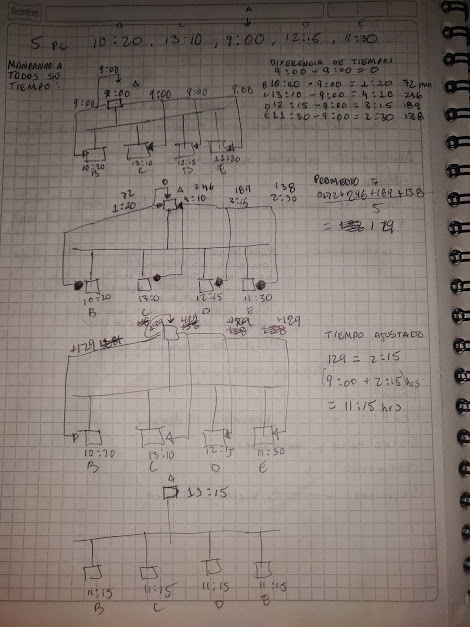 Scribe
B C A D E
5 PC 10:20, 13:10, 9:00, 12:15, 11:30
MANDANDO A
TODOS SU
TIEMPO:
9:00
A
9:00 9:00 9:00 9:00 9:00
10:20 13:10 12:15 11:30
B C D E
DIFERENCIA DE TIEMPO
9:00 - 9:00 = 0
B 10:20 - 9:00 = 1:20 72 min
C 13:10 - 9:00 = 4:10 246
D 12:15 - 9:00 = 3:15 189
E 11:30 - 9:00 = 2:30 138
0 A
72 246 189 138
1:20 4:10 3:15 2:30
10:20 13:0 12:15 11:30
B C D E
PROMEDIO =
0+72+246+189+138
5
= 129
+129 +129 +129 +129 +129
10:20 13:10 12:15 11:30
B C D E
TIEMPO AJUSTADO
129 = 2:15
(9:00 + 2:15) hrs
= 11:15 hrs
A
11:15
11:15 11:15 11:15 11:15
B C D E